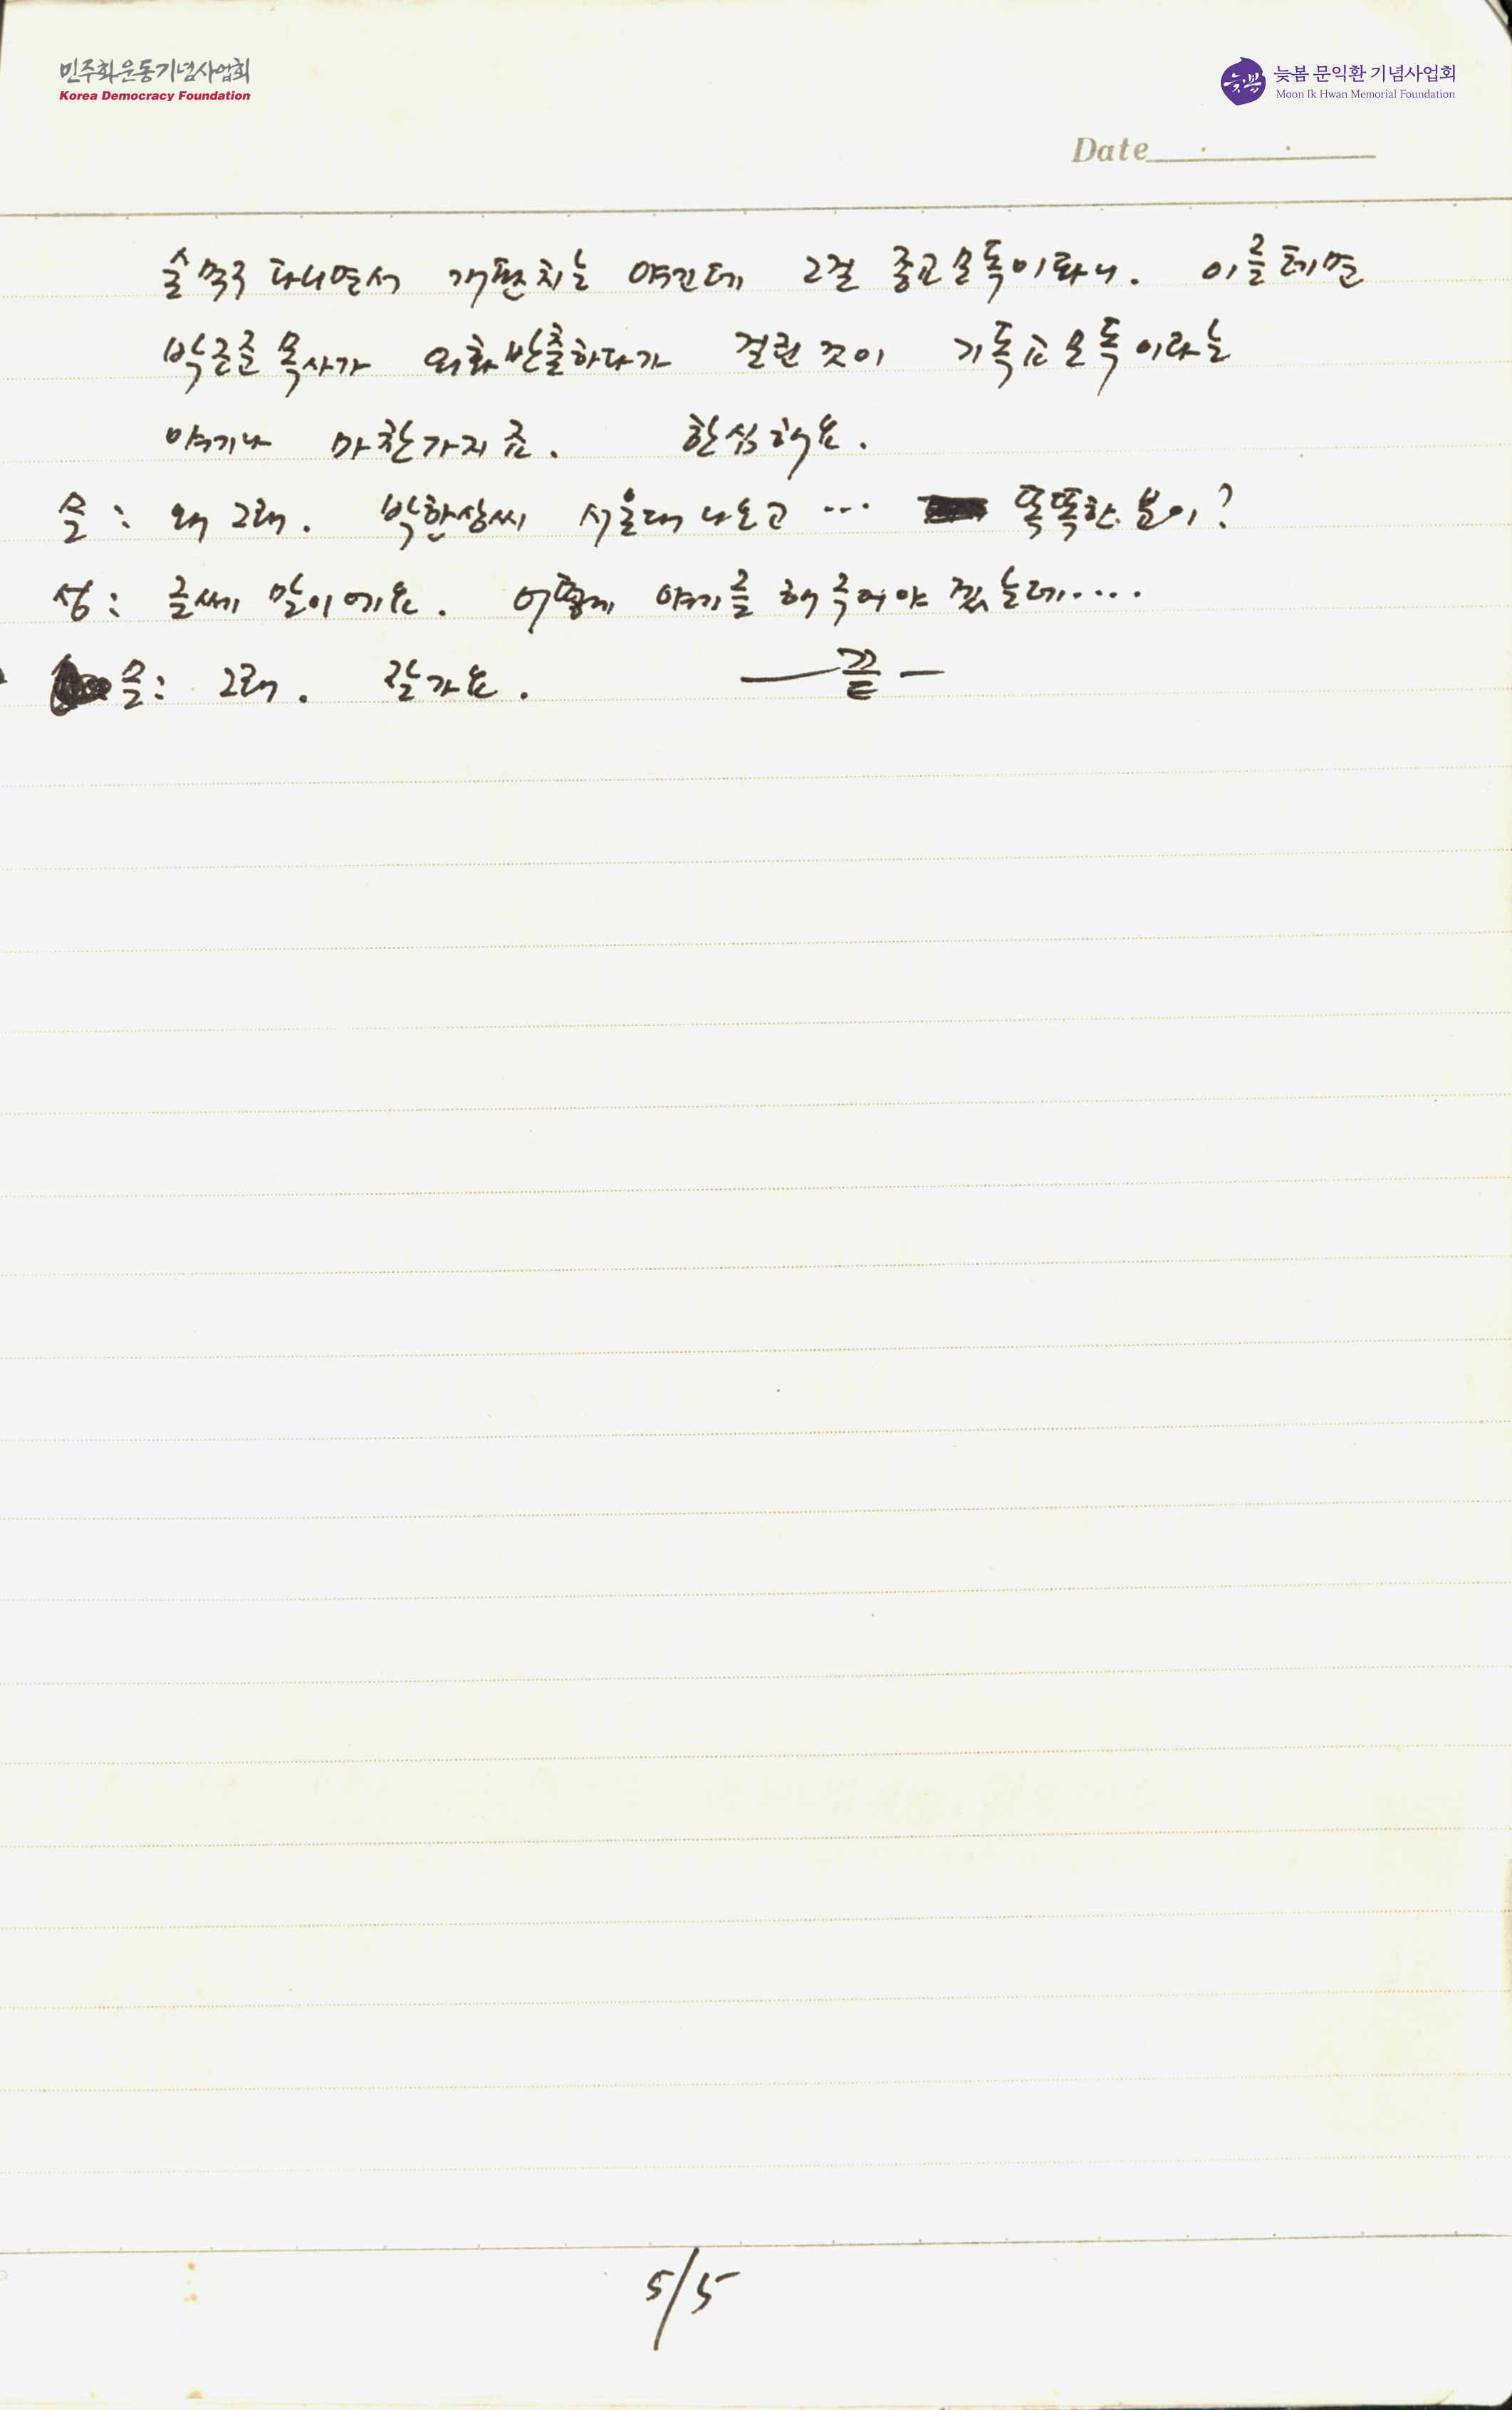 민주화운동기념사업회
Korea Democracy Foundation
늦봄
늦봄 문익환 기념사업회
Moon Ik Hwan Memorial Foundation
Date
술 먹구 다니면서 개판치는 얘긴데 그걸 종교모독이라니. 이를테면
박조준 목사가 외화반출하다가 걸린 것이 기독교모독이라는
얘기나 마찬가지죠. 한심해요.
문: 왜 그래. 박한상씨 서울대 나오고 ... 똑똑한 분이?
성: 글쎄 말이에요. 어떻게 얘기를 해주어야 겠는데....
문: 그래. 잘가요. —끝—
5/5